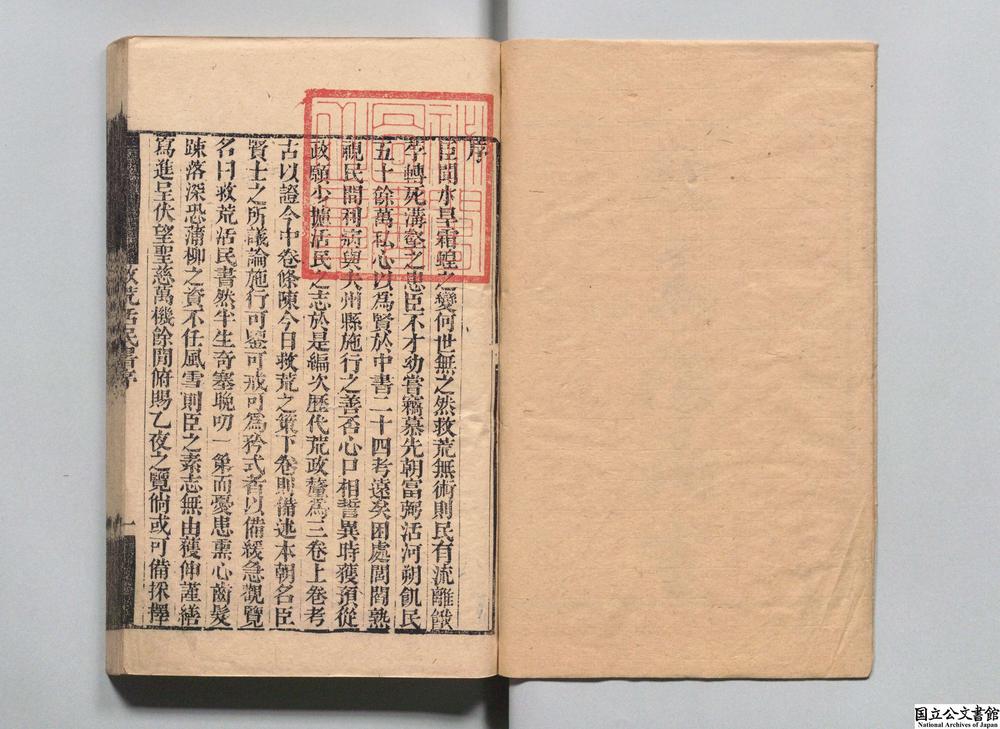 序
臣聞水旱霜蝗之變何世無之然救荒無術則民有流離餓
莩轉死溝壑之患臣不才幼嘗竊慕先朝富弼活河朔飢民
五十餘萬私心以爲賢於中書二十四考遠矣困處閭閻熟
視民間利病與夫州縣施行之善否心口相誓異時獲預從
政願少攄活民之志於是編次歷代荒政釐爲三卷上卷考
古以證今中卷條陳今日救荒之策下卷則備述本朝名臣
賢士之所議論施行可鑒可戒可爲矜式者以備緩急觀覽
名曰救荒活民書然半生奇蹇晩叨一第而憂患熏心齒髮
踈落深恐蒲柳之資不任風雪則臣之素志無由獲伸謹繕
寫進呈伏望聖慈萬機餘閒俯賜乙夜之覽倘或可備採擇
救荒活民書序
一
国立公文書館
National Archives of Japan